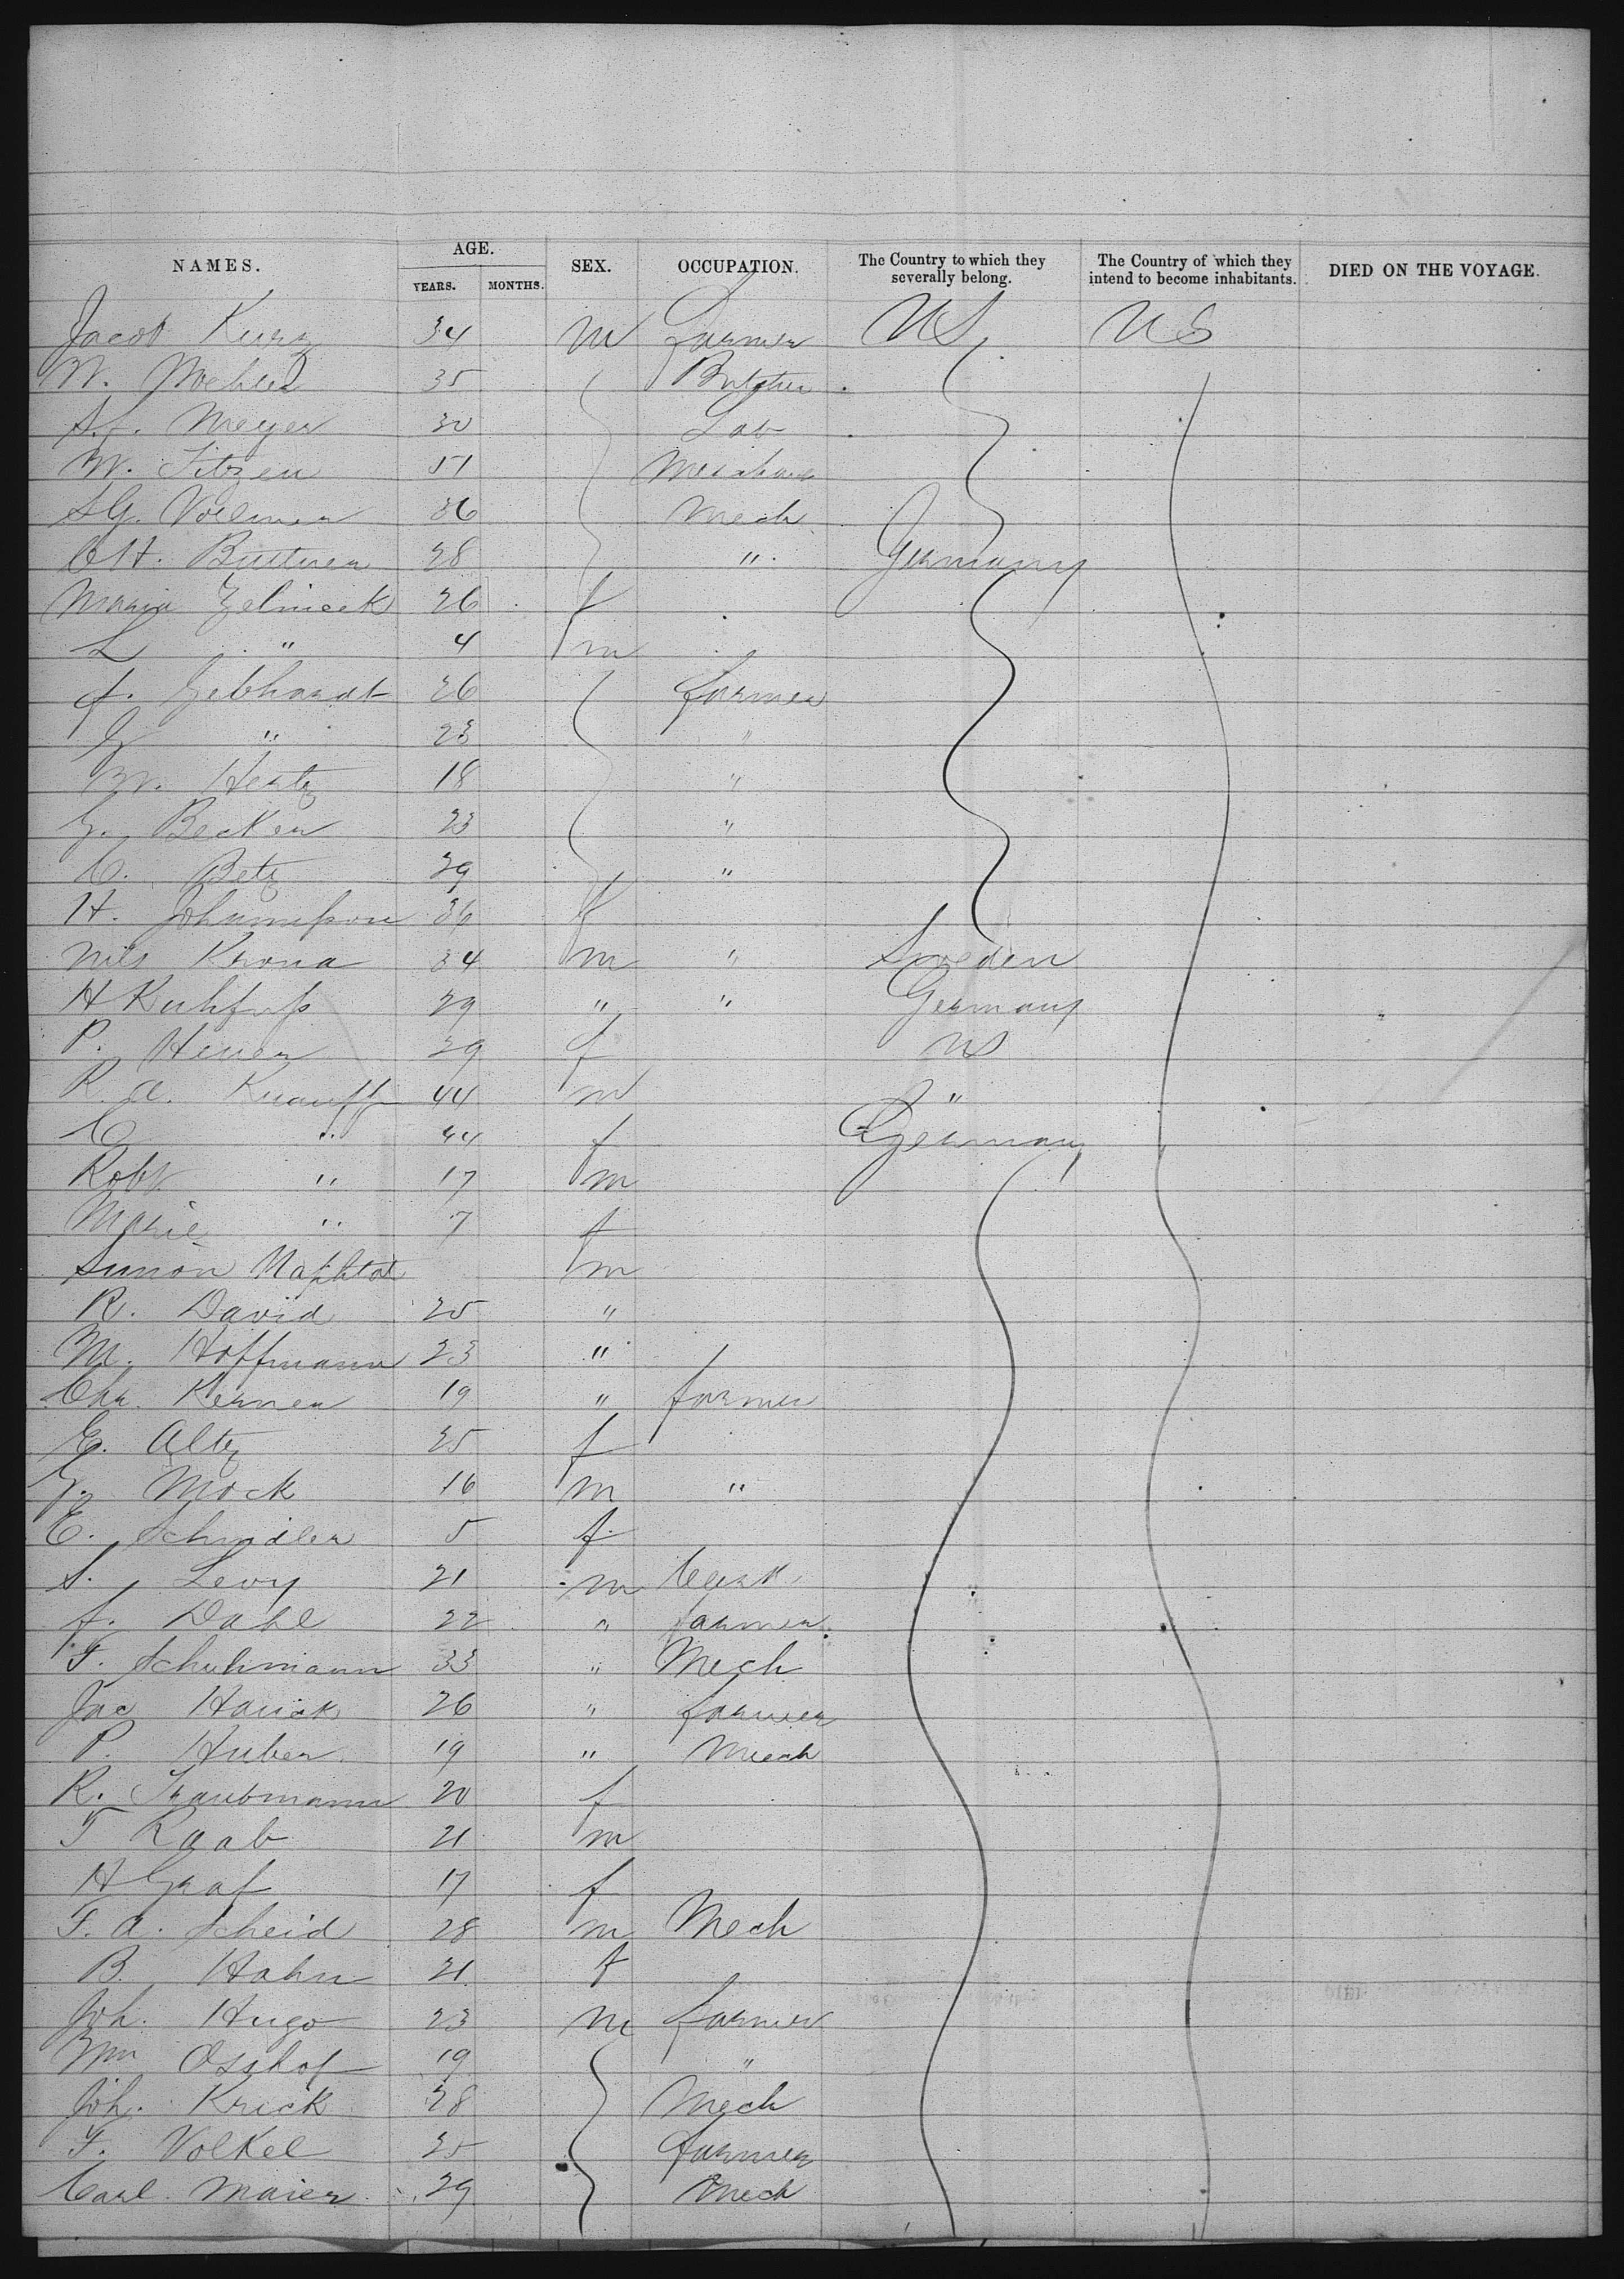 NAMES. AGE. YEARS. MONTHS. SEX. OCCUPATION. The Country to which they severally belong. The Country of which they intend to become inhabitants. DIED ON THE VOYAGE.
Jacob Kurz 34 m Farmer US US
W. 35 Butcher
Meyer 30 Lab
W. 51
S.G. Vollmer 36 Mech
Ott. Buttner 28 " Germany
Maria Zelnicek 26 f
L " 4 m
f. Gebhardt 26 farmer
G " 23 "
W. Hertz 18 "
G. Becker 23 "
C. Betz 29 "
H. Johannesson 36 f
Nils Krona 34 m " Sweden
H Kuhfuss 29 " " Germany
P. 29 f US
R. A. Knauff 44 m "
C " 44 f Germany
Robt " 17 m
Marie " 7 f
Simon m
R. David 25 "
M. Hoffmann 23 "
Chr. Kerner 19 " farmer
E. Altz 25 f
G. Mock 16 m "
E. Schindler 5 f
S. Levy 21 m Clerk
f. Dahl 22 " farmer
F. Schuhmann 33 " Mech
Jac Hauck 26 " farmer
P. Huber 19 " Mech
R. Traubmann 20 f
F Raab 21 m
H Graf 17 f
F. A. Scheid 28 m Mech
B. Hahn 21 f
Joh. Hugo 23 m farmer
Wm Osshof 19 "
Joh. Krick 28 Mech
F. Volkel 25 farmer
Carl Maier 29 Mech